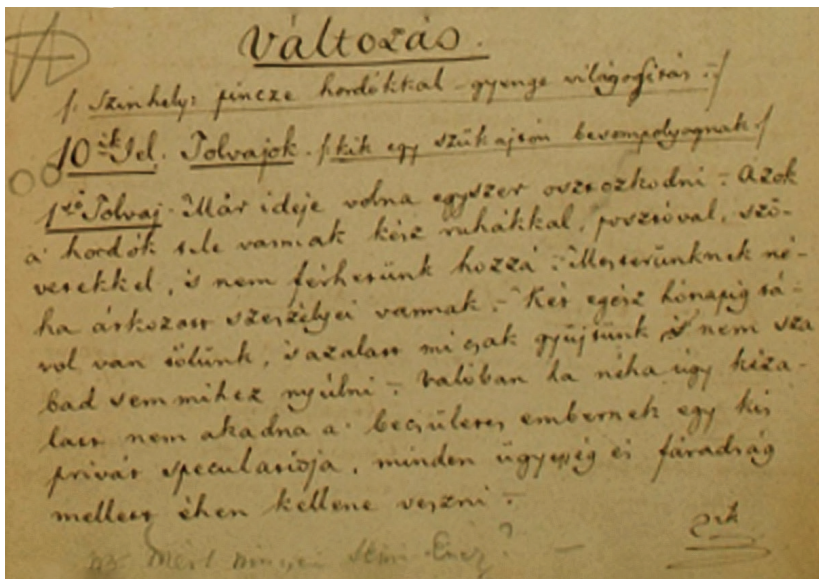 Változás.
/: Szinhely: pincze hordókkal – gyenge világositás :/
10ik Jel. Tolvajok. /: kik egy szük ajtón bevompolyagnak :/
1ső Tolvaj. Már ideje volna egyszer osztozkodni – Azok
a' hordók tele vannak kész ruhákkal, posztóval, szö-
vetekkel, 's nem férhetünk hozzá – Mesterünknek né-
ha átkozott szeszélyei vannak. – Két egész hónapig tá-
vol van tőlünk, 's azalatt mi csak gyüjtünk 's nem sza
bad semmihez nyúlni – Valóban ha néha úgy kéza-
latt nem akadna a' becsületes embernek egy kis
privát speculatiója, minden ügyesség és fáradság
mellett éhen kellene veszni –